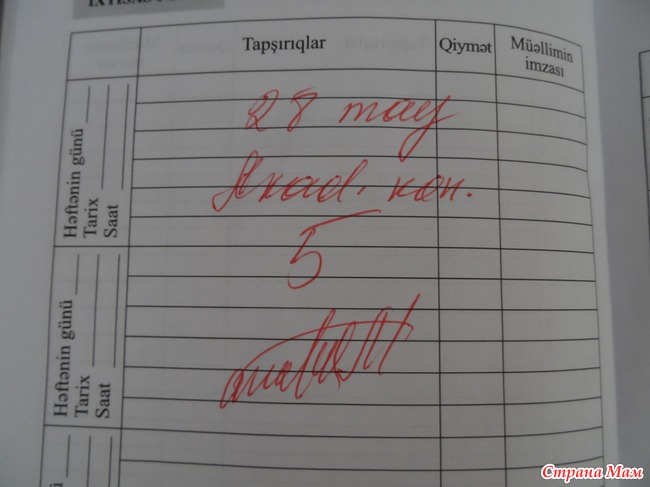 Tapşırıqlar
Qiymət
Müəllimin
imzası
Həftənin günü
Tarix
Saat
28 may
Акад. кон.
5
Həftənin günü
Tarix
Saat
Страна Мам